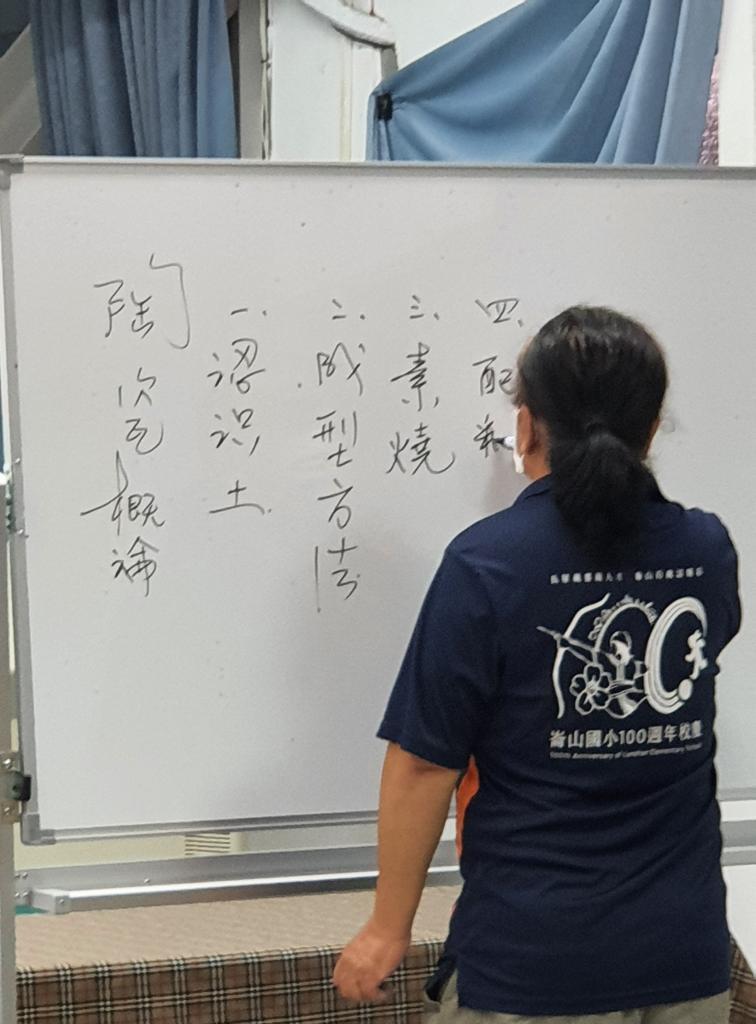 陶瓷概論
一、認识土
二、成型方法
三、素燒
四、配
崙山國小100週年校慶
100th Anniversary of Lunshan Elementary School